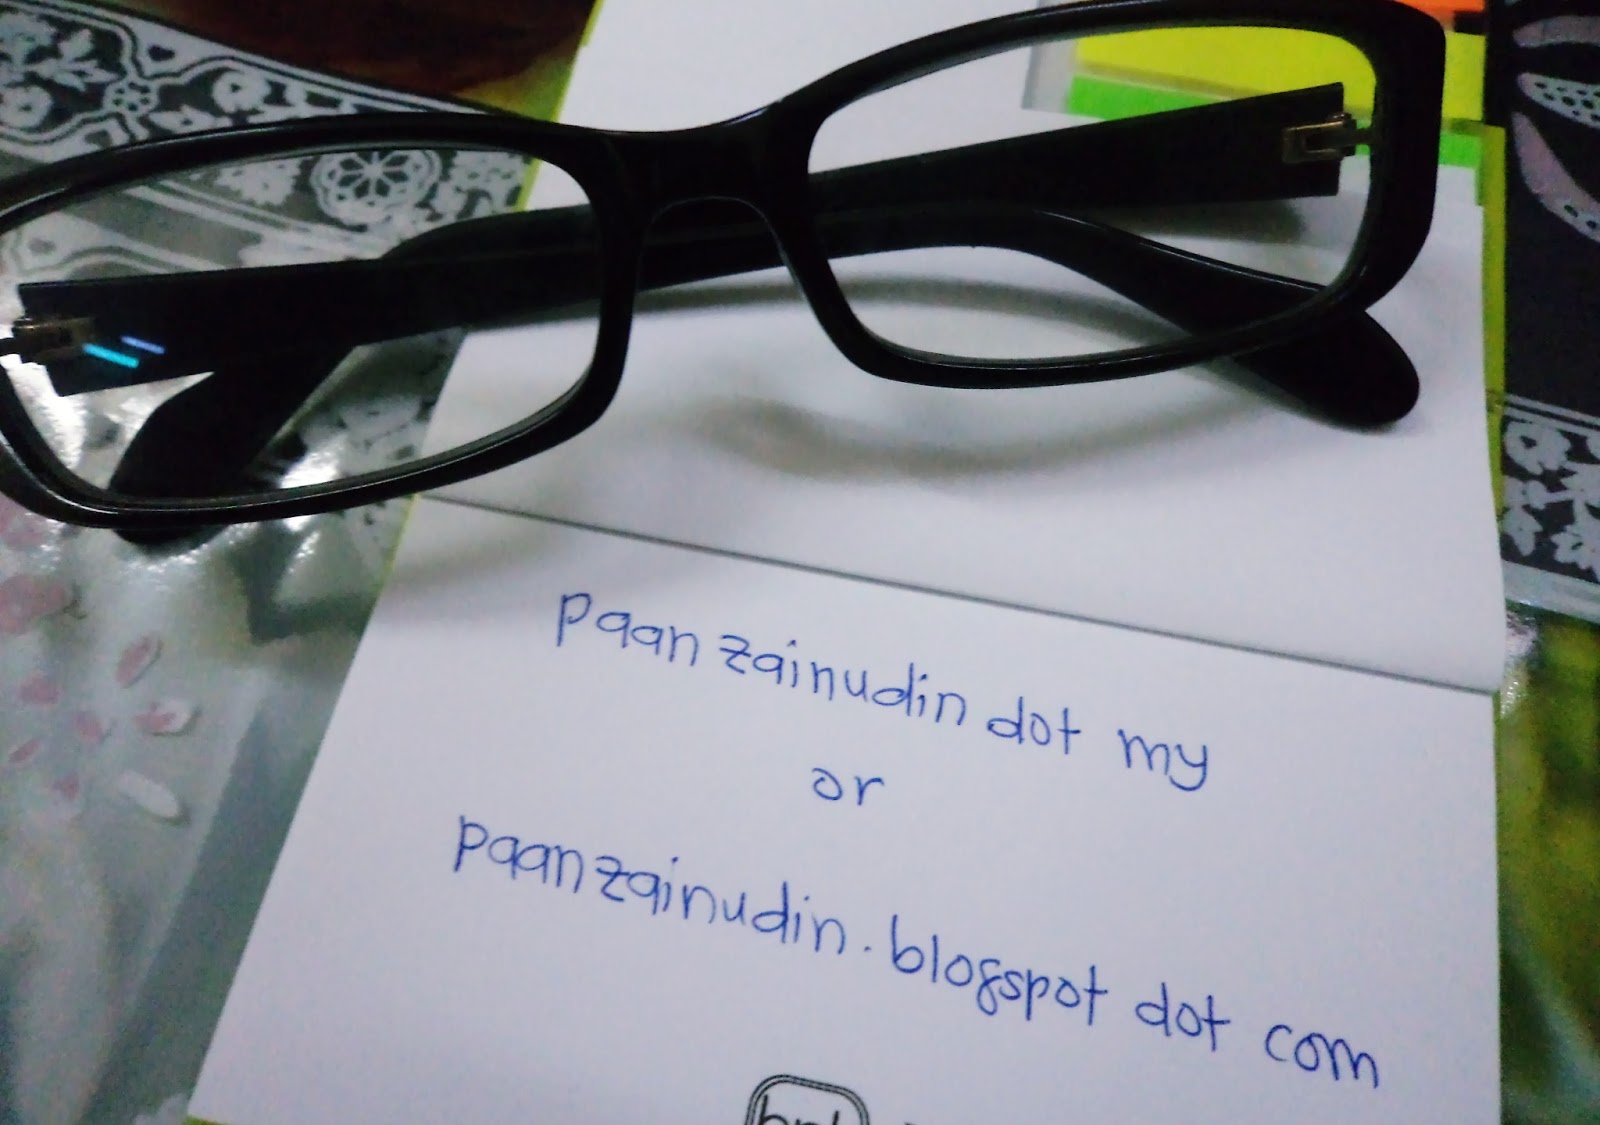 paanzainudin dot my
or
paanzainudin.blogspot dot com